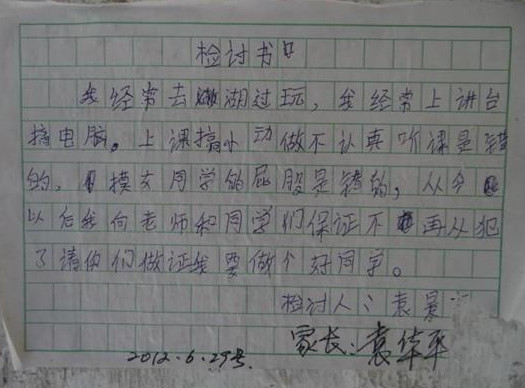 检讨书
我经常去湖过玩，我经常上讲台
搞电脑。上课搞小动做不认真听课是错
的，摸女同学的屁股是错的，从今
以后我向老师和同学们保证不再从犯
了请你们做证我要做个好同学。
检讨人：袁景
家长：袁华平
2012.6.29号.